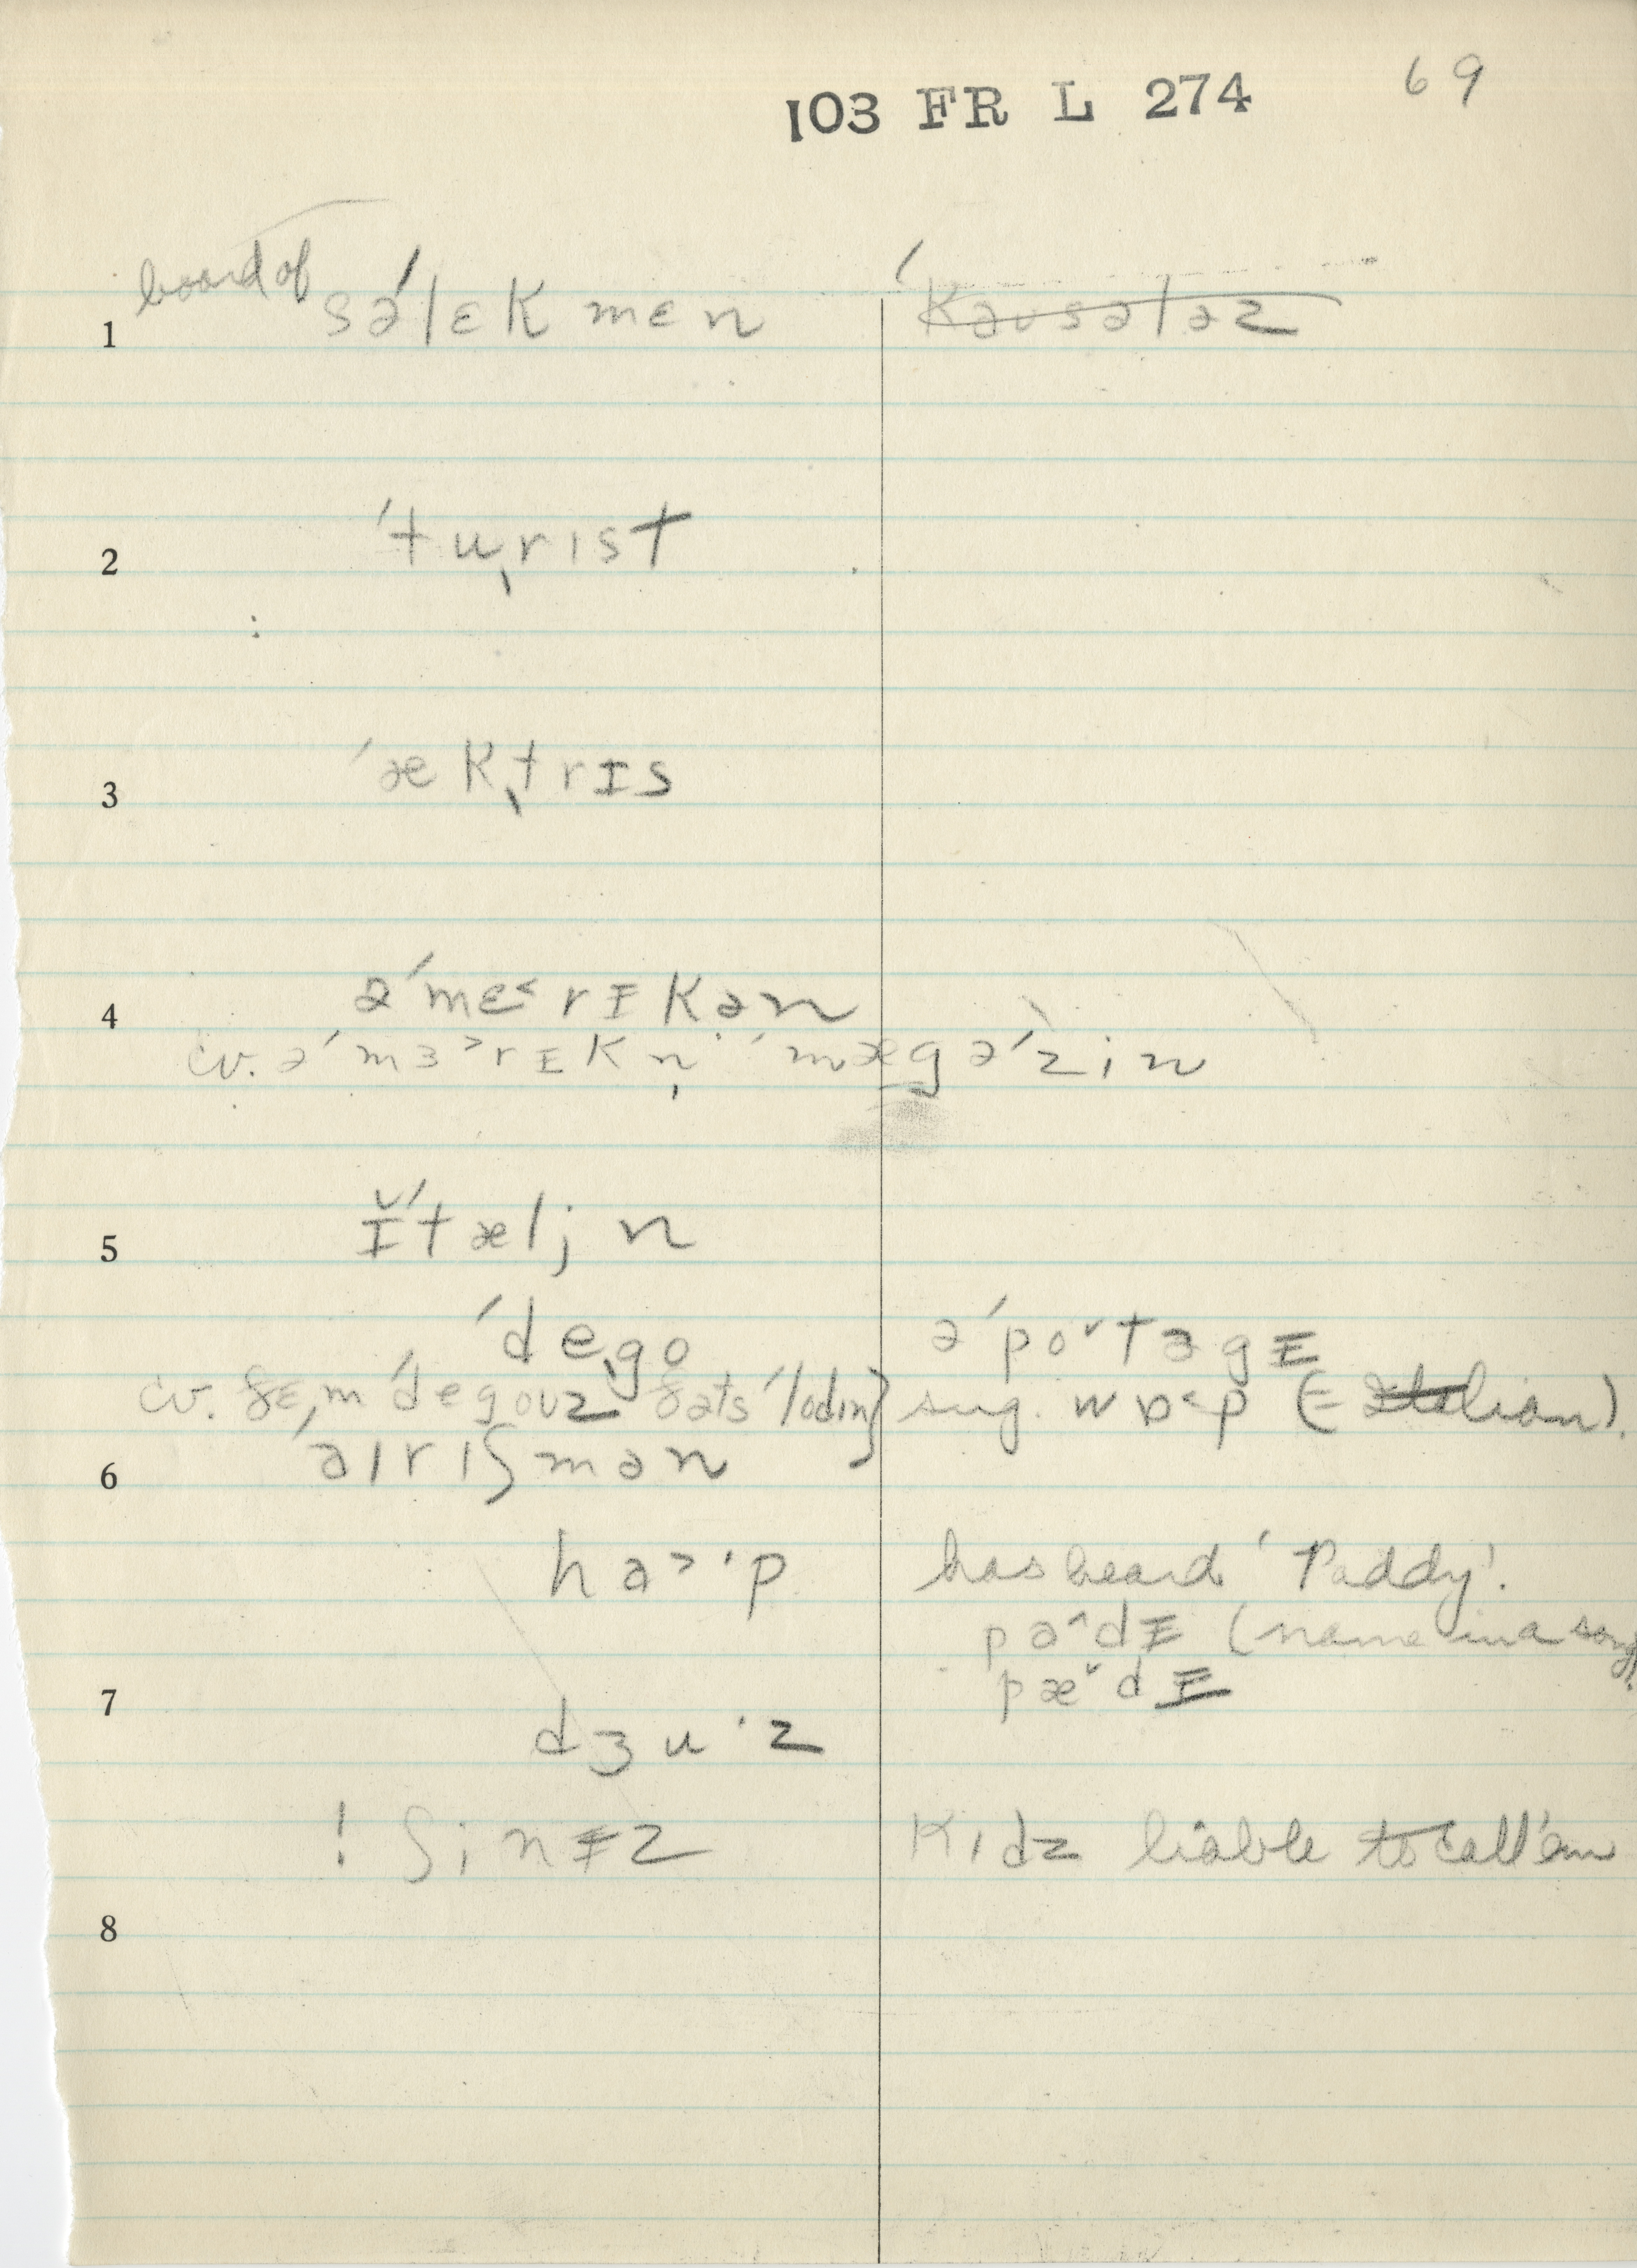 103 FR L 274 69
board of
1 səˈlɛkmɛn ˈkəʊsələz
2 ˈtuˌrɪst
3 ˈækˌtrɪs
4 əˈmɛ˂rɪkən
cv. əˈmɜ˃rɪkn̩ ˈmægəˈzin
5 ɪ̆ˈtæljn
ˈdeˌgo əˈpo˅təgɪ
cv. ðɛˌm ˈdegoʊz ðəts ˈlodɪn} sug. wɒ˂p (= Italian).
6 ˈaɪrɪʃmən
ha˃·p has heard 'Paddy'.
pa˄dɪ (name in a song).
7 pæ˅dɪ
dʒu·z
! ʃinɪz Kɪdz liable to call 'em
8